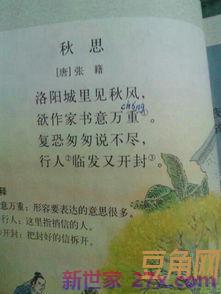 秋思
[唐]张籍
洛阳城里见秋风，
chóng
欲作家书意万重①。
复恐匆匆说不尽，
行人②临发又开封③。
释
意万重：形容要表达的意思很多。
行人：这里指捎信的人。
开封：把封好的信拆开。
豆角网
新世家 27x.com